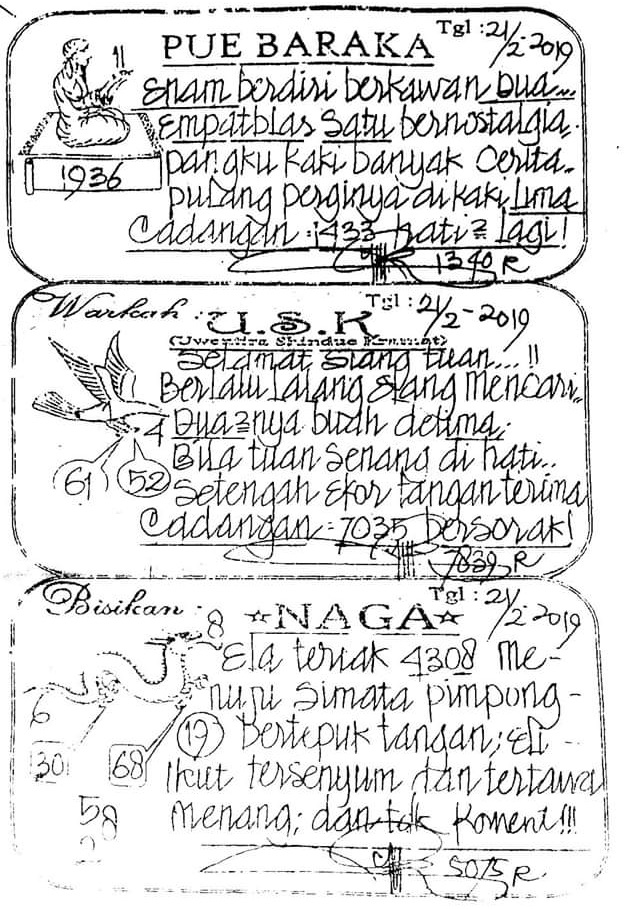 PUE BARAKA
Tgl : 21/2-2019
Enam berdiri berkawan Dua...
Empatblas Satu bernostalgia,
1936
pangku kaki banyak Cerita..
pulang perginya dikaki Lima
Cadangan : 1433 hati2 lagi!
1340 R
Warkah :
U.S.K
Tgl : 21/2-2019
Selamat siang tuan...!!
Berlalu lalang Elang Mencari..
4 Dua2nya buah delima;
Bila tuan Senang di hati..
61 52 Setengah Ekor tangan terima
Cadangan = 7035 bersorak!
7839 R
Bisikan :
☆NAGA☆
Tgl : 21/2-2019
8
Ela teriak 4308 Me-
nuju Simata pimpong -
6
19 Bertepuk tangan; Eli -
30 68
Ikut tersenyum dan tertawa
58
Menang; dan tak Koment!!!
2
5075 R